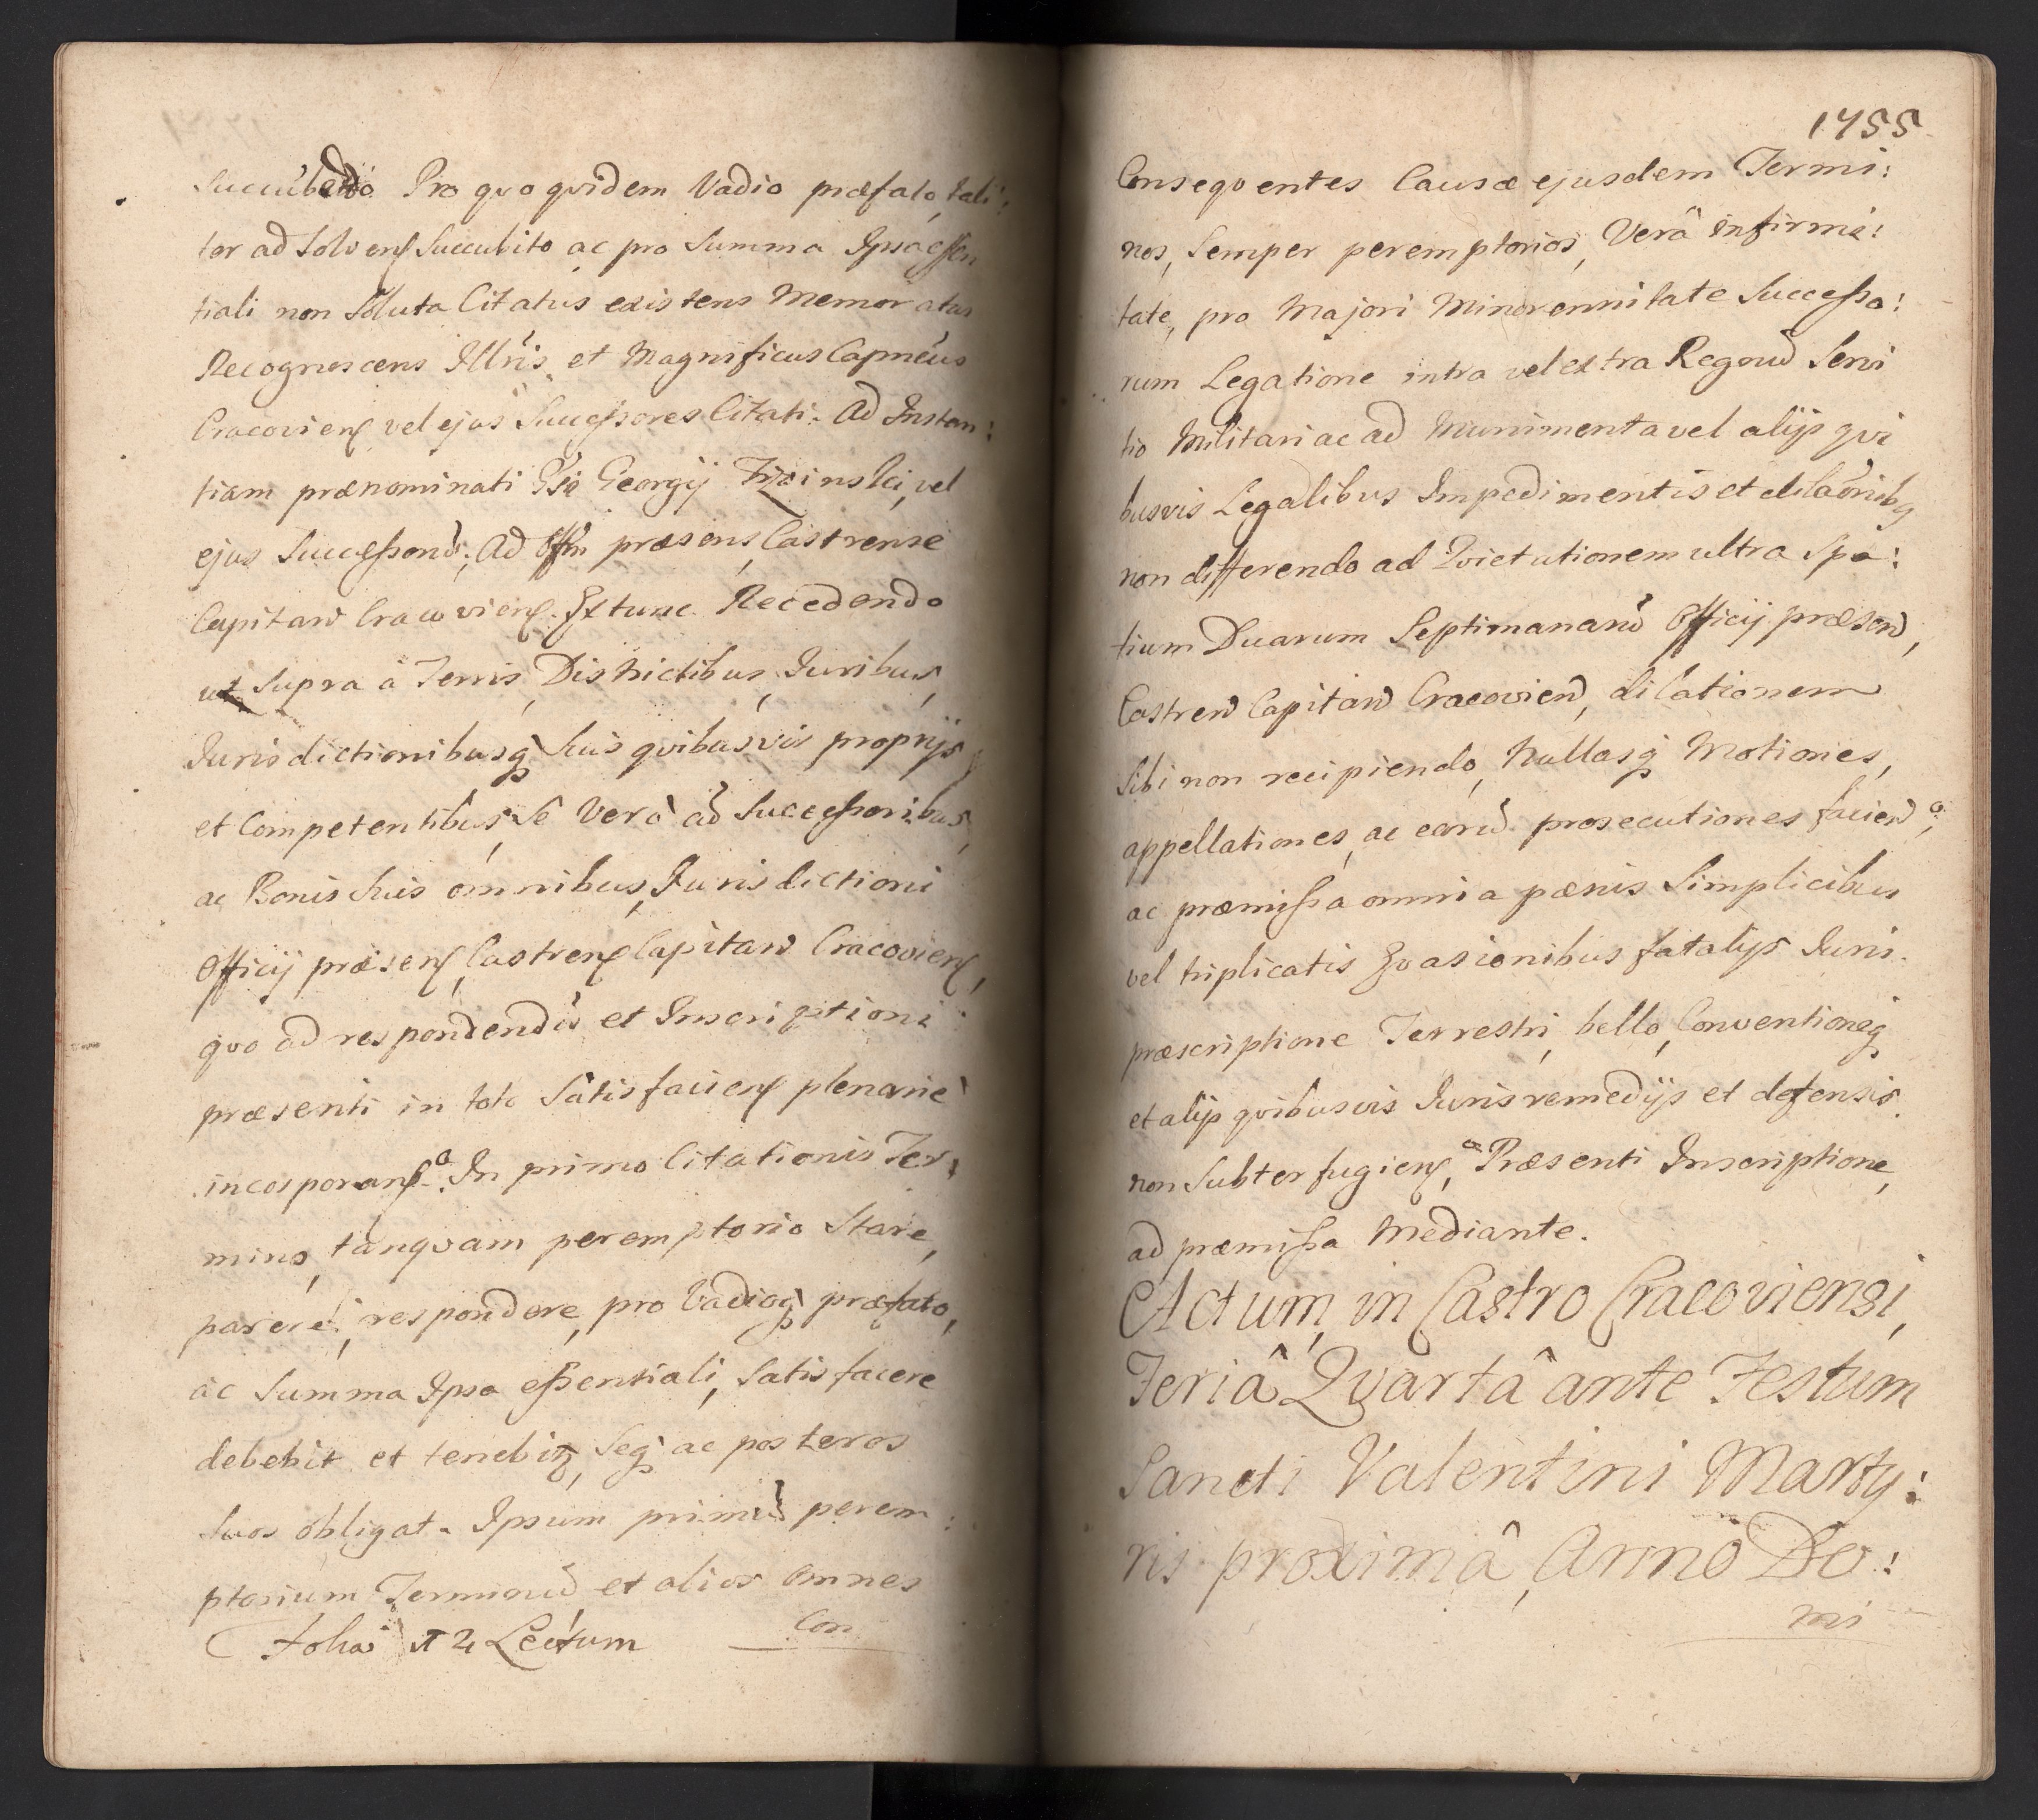 Succubendo. Pro qvo qvidem Vadio præfato, tali:
ter ad Solvenſ Succubito ac pro Summa Ipsa eſſen
tiali non Soluta Citatus existens Memoratus
Recognoscens Illris et Magnificus Capneus
Cracovienſ vel ejus Succeſsores Citati. Ad Instan:
tiam prænominati Gsi Georgij Trzinski, vel
ejus Succeſsorū; Ad Offm præsens, Castrense
Capitan Cracovienſ. Extunc Recedendo
ut Supra à Terris, Districtibus, Juribus,
Jurisdictionibusq Suis qvibusvis proprijs,
et Competentibus, Se Verò ad Succeſsoribus,
ac Bonis Suis omnibus, Jurisdictioni
Officij præsenſ, Castrenſ Capitan Cracovienſ,
qvo ad respondendū et Inscriptioni
præsenti in toto Satisfacienſ plenariè
incorporanſ a. In primo Citationis Ter:
mino, tanqvam peremptorio Stare,
parere, respondere, pro Vadioq præfato,
ac Summa Ipsa eſsentiali, Satisfacere
debebit et tenebit, Seq ac posteros
Suos obligat. Ipsum primū perem:
ptorium Terminū et alios omnes
Con
Folia π 4 Lectum
1755
Conseqventes Causæ ejusdem Termi:
nos, Semper peremptorios, Verâ infirmi:
tate, pro Majori Minorennitate Succeſso:
rum Legatione intra vel extra Regnū Servi
tio Militari ac ad Munimenta vel alijs qvi
busvis Legalibus Impedimentis et dilaonibq
non differendo ad Qvietationem ultra Spa:
tium Duarum Septimanarū Officij præsen,
Castren Capitan Cracovien, dilationem
Sibi non recipiendo, Nullasq Motiones,
appellationes, ac earū prosecutiones facien a,
ac præmiſsa omnia pænis Simplicibus
vel triplicatis Evasionibus fatalijs Juris.
præscriptione Terrestri, bello, Conventioneq
et alijs qvibusvis Juris remedijs et defensis.
non Subterfugienſ a, Præsenti Inscriptione,
ad præmiſsa Mediante.
Actum in Castro Cracoviensi,
Feriâ Qvartâ ante Festum
Sancti Valentini Marty:
ris proximâ, Anno Do:
mi